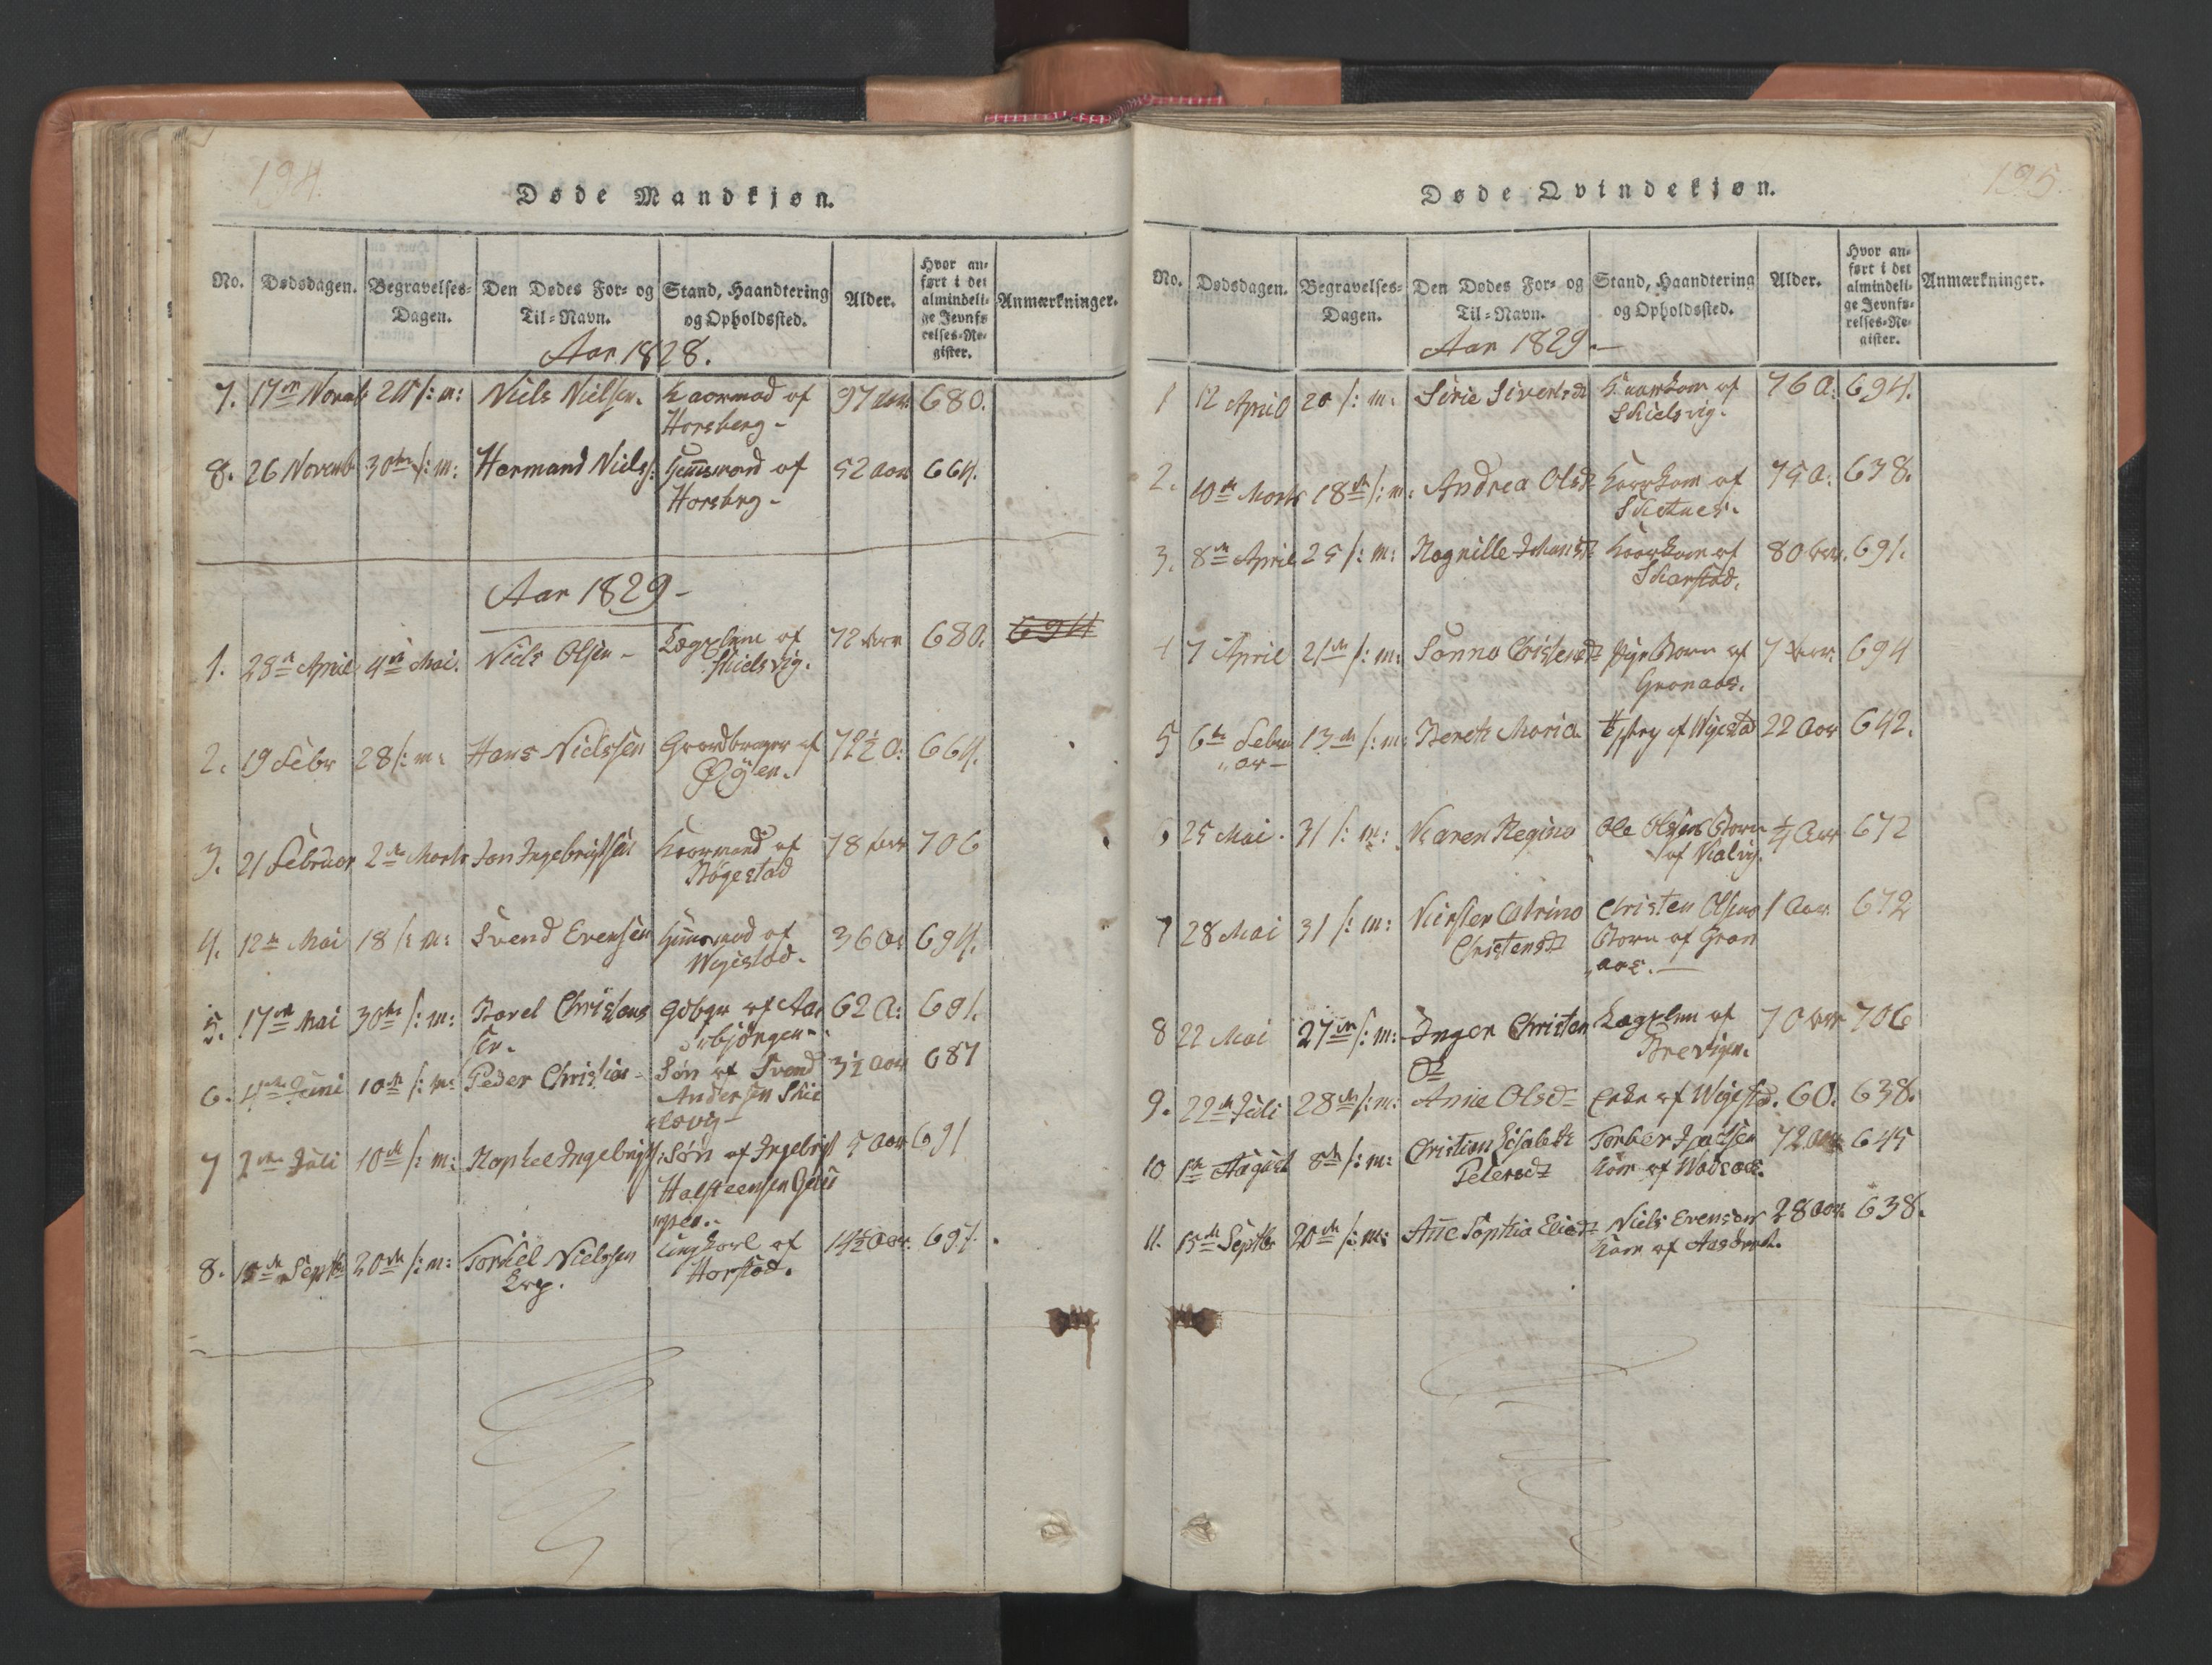 194.
Døde Mandkjøn.
No. Dødsdagen. Begravelses-Dagen. Den Dødes For- og Til-Navn. Stand, Haandtering og Opholdssted. Alder. Hvor anført i det almindelige Jevnførelses-Register. Anmærkninger.
Aar 1828.
7. 17de Novemb 25 /: m: Niels Nielsen. Kaarmad af 97 aar. 680.
Horsberg -
8. 26 Novemb 30te /: m: Hermand Niels: Huusmand af 52 aar 664.
Horsbrg -
Aar 1829 -
1. 28de April 4de Mai. Niels Olsen - Lægdslem af 72 aar 680. 694
Skielsvig.
2. 19 Febr 28 /: m: Hans Nielssen Gaardbruger af 72½ a: 664.
Øÿen.
3. 21 Februar 2de Marts Jon Ingebrigtsen Kaarmand af 78 aar 706
Bøgestad
4. 12te Mai 18 /: m: Svend Evensen Huusmad af 36 a: 694.
Wigestad.
5. 17de Mai 30te /: m: Torel Christens Gdbgr af Aas 62 a: 691.
sen. biörgen
6. 4de Juni 10de /: m: Peder Christian - Søn af Svend 3½ aar 687
Andersen Skie
lsvig -
7 2de Juli 10de /: m: Raphel Ingebrigts: Søn af Ingebrigt 5 aar 691
Halsteensen Gau
pen.
8. 15de Septbr 20de /: m: Torkel Nielssen Ungkarl af 14½ aar. 691.
Erg. Harstad.
195.
Døde Qvindekjøn.
No. Dødsdagen. Begravelses-Dagen. Den Dødes For- og Til-Navn. Stand, Haandtering og Opholdssted. Alder. Hvor anført i det almindelige Jevnførelses-Register. Anmærkninger.
Aar 1829.-
1 12 April 20 /: m: Sirie Sivertsdt Kaarkone af 76 a: 694.
Skielsvig.
2. 10de Marts 18de /: m: Andrea Olsd Kaarkone af 75 a: 638.
Sketnes.
3. 8de April 25 /: m: Ragnille Johansdt Kaarkone af 80 aar. 691.
Skarstad.
4 7 April 21de /: m: Sanna Christensdt Pigebarn af 7 aar. 694
Gronaas.
5 6te Febru 13de /: m: Bereth Maria af Wigestad 22 aar 642.
"ar -
6 25 Mai. 31 /: m: Karen Regina Ole Olsens Barn ¼ Aar 672
af Kalvig.
7 28 Mai 31 /: m: Kiersten Catrina Christen Olsens 1 aar. 672
Christensdt Barn af Gron
"aas. -
8 22 Mai 27de /: m: Inger Christen Lægdslem af 70 aar 706
dt Brevigen.
9. 22de Juli 28de /: m: Anne Olsd Enke af Wigestd. 60. 638.
10 1te August 8de /: m: Christian Elisabeth Torber Isachsen 72 aar 645
Petersdt Kone af Wadsaas.
11. 15de Septbr 20de /: m: Anne Sophia Eliasdt Niels Evensens 28 aar. 638.
Kone af